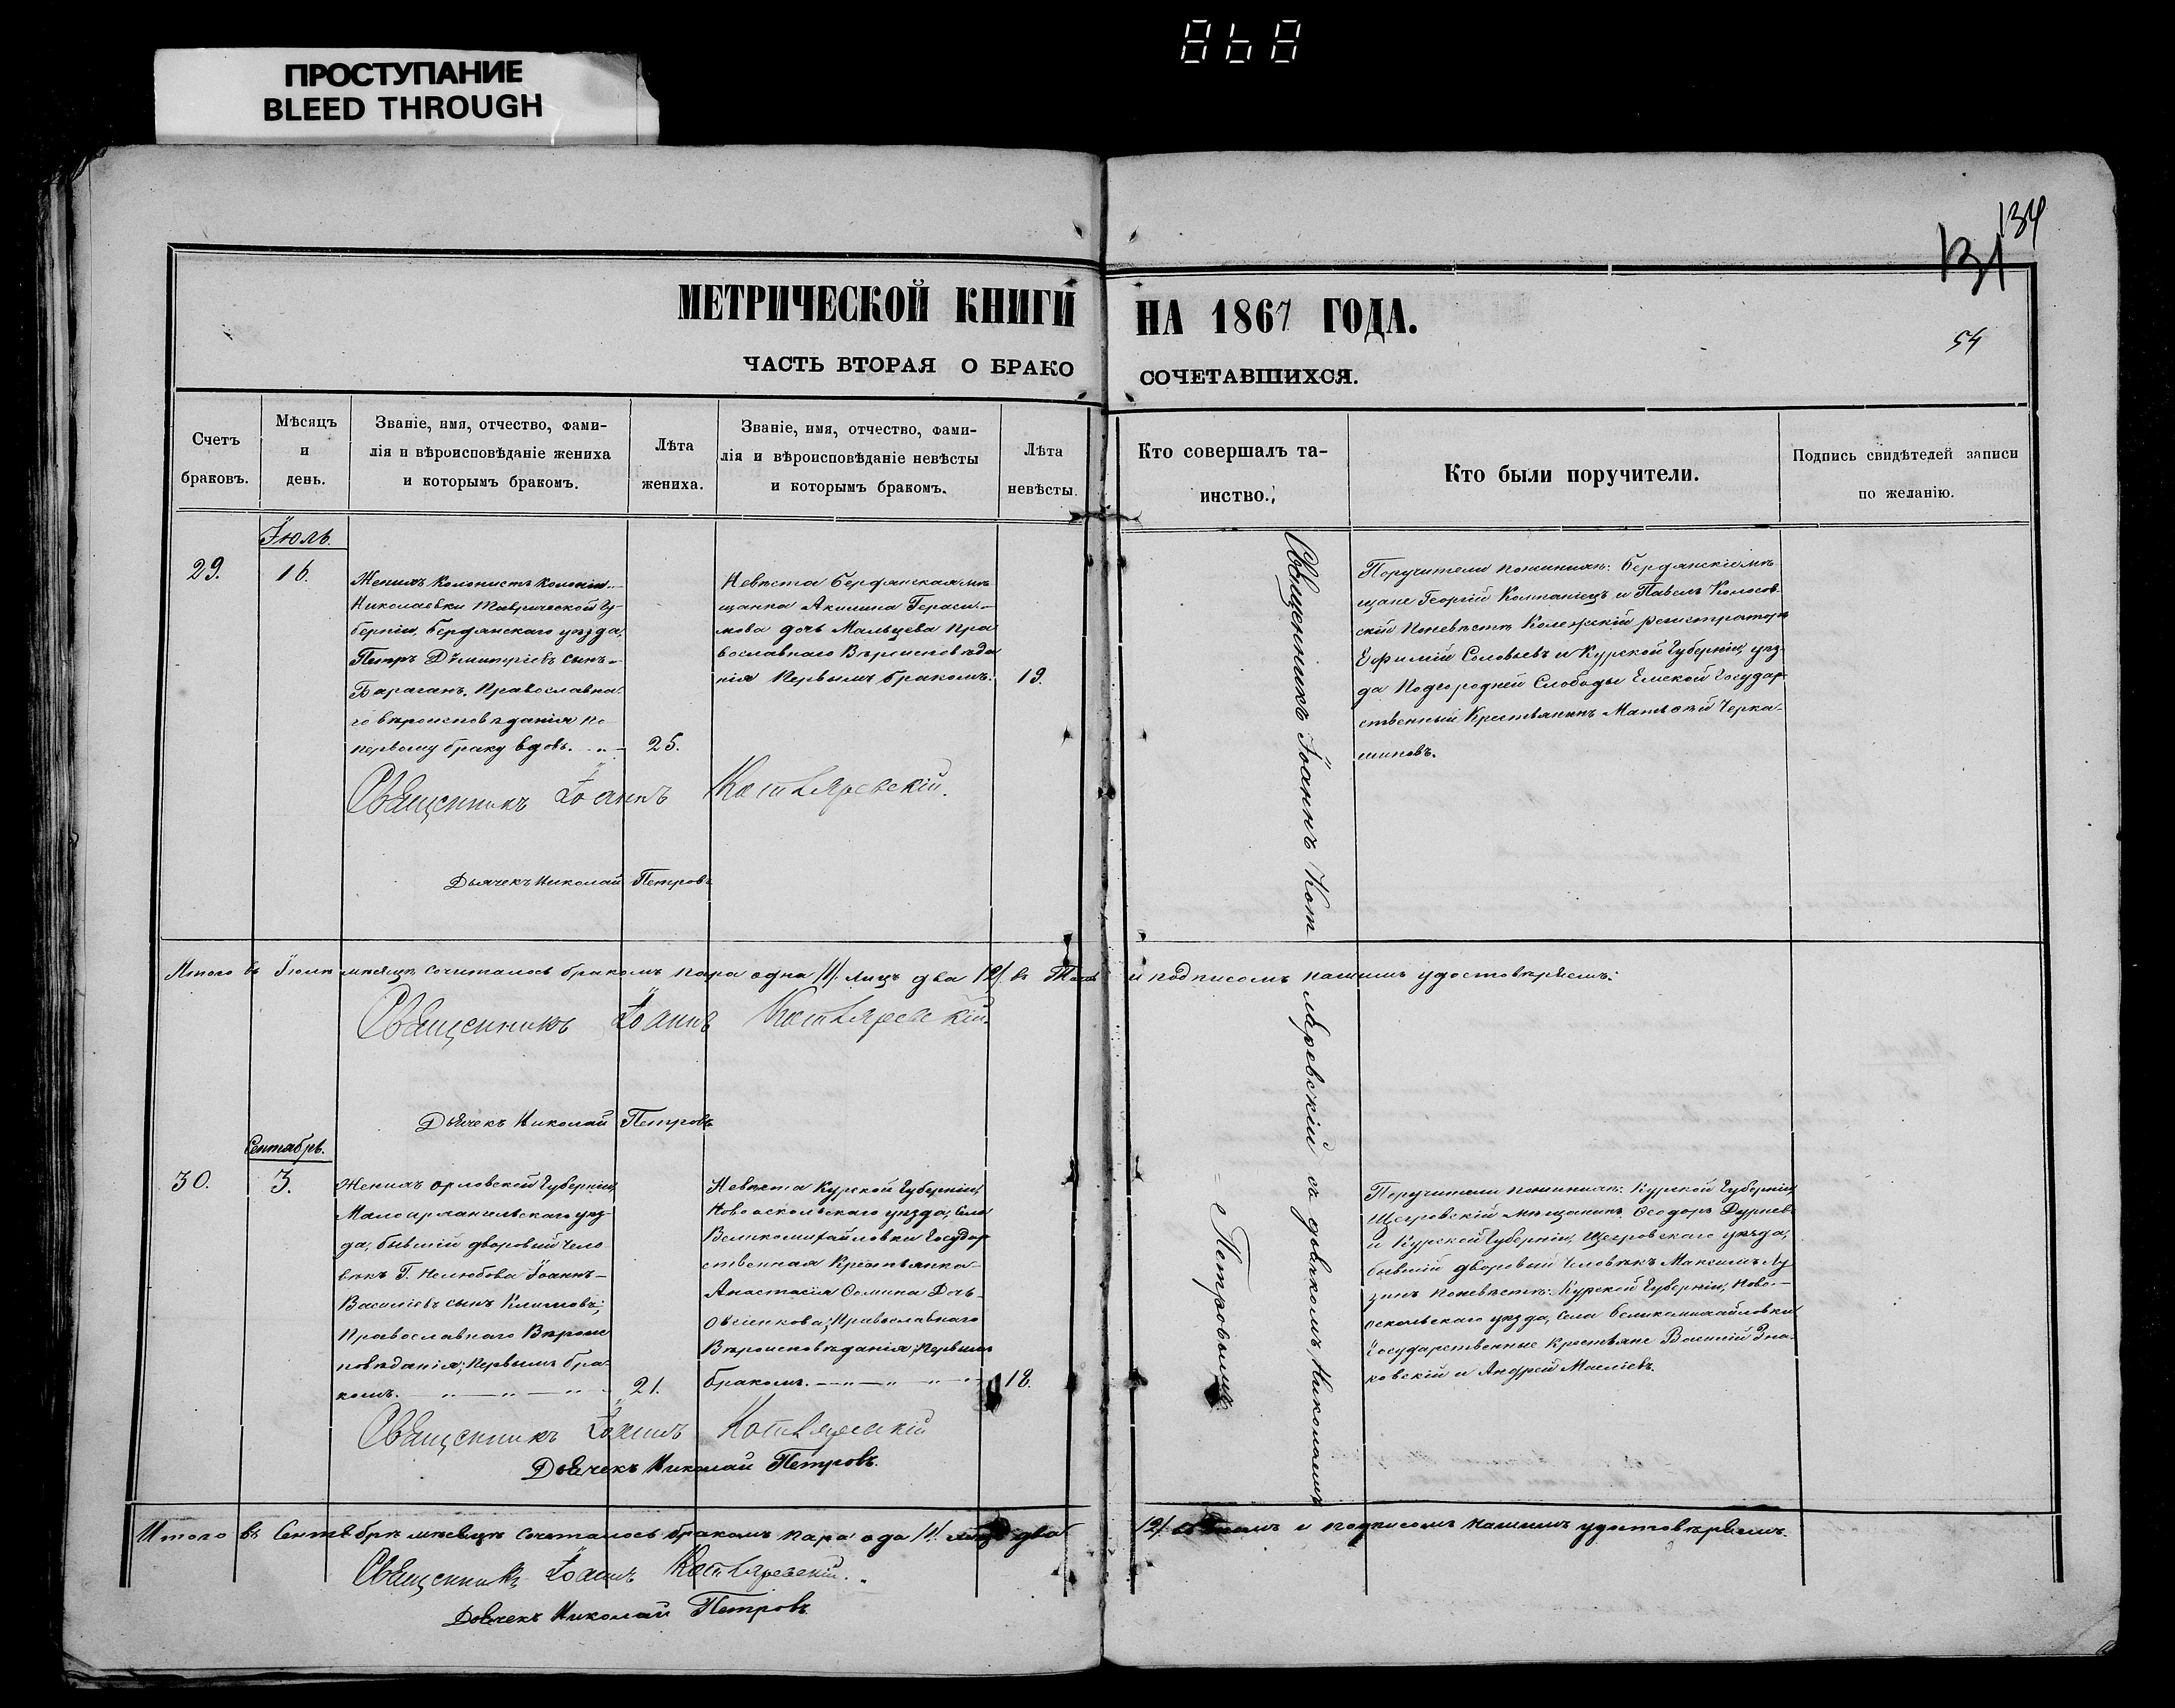 868
ПРОСТУПАНИЕ
BLEED THROUGH
134
131
МЕТРИЧЕСКОЙ КНИГИ НА 1867 ГОДА.
54
ЧАСТЬ ВТОРАЯ О БРАКОСОЧЕТАВШИХСЯ.
Счетъ
браковъ.
Мѣсяцъ
и
день.
Званіе, имя, отчество, фами-
лія и вѣроисповѣданіе жениха
и которымъ бракомъ.
Лѣта
жениха.
Званіе, имя, отчество, фами-
лія и вѣроисповѣданіе невѣсты
и которымъ бракомъ.
Лѣта
невѣсты.
Кто совершалъ та-
инство.
Кто были поручители.
Подпись свидѣтелей записи
по желанію.
Іюль.
29.
16.
Женихъ колонистъ колоніи
Николаевки Таврической Гу-
берніи, Бердянскаго уѣзда,
Петръ Димитріевъ сынъ
Бараганъ, Православна-
го вѣроисповѣданія по
первому браку вдовъ.
25.
Невѣста Бердянская мѣ
щанка Акилина Гераси-
мова дочь Мальцева пра
вославнаго Вѣроисповѣда
нія первымъ бракомъ.
19.
Священникъ Іоаннъ Котляревскій съ дьячкомъ Николаемъ
Петровымъ.
Поручители по женихѣ: Бердянскіе мѣ
щане Георгій Компаніецъ и Павелъ Колосов
скій по невѣстѣ Колежскій регистраторъ
Ефимій Соловьевъ и Курской Губерніи, уѣз-
да Подгородней Слободы Емской Государ-
ственный Крестьянинъ Матѳѣй Черка-
шиновъ.
Священникъ Іоаннъ Котляревскій.
Дьячекъ Николай Петровъ
Итого въ Іюлѣ мѣсяцѣ сочиталось бракомъ пара одна /1/. лицъ два /2/. въ томъ и подписомъ нашимъ удостовѣряемъ:
Священникъ Іоаннъ Котляревскій.
Дьячекъ Николай Петровъ
Сентябрь.
30.
3.
Женихъ Орловской Губерніи,
Малоархангельскаго уѣз-
да, бывшій дворовый чело
вѣкъ Г. Нелюбова Іоаннъ
Василіевъ сынъ Климовъ;
Православнаго Вѣроис
повѣданія; первымъ бра-
комъ.
21.
Невѣста Курской Губерніи,
Новооскольскаго уѣзда, села
Великомихайловки Государ
ственная Крестьянка
Анастасія Ѳомина Дочь
Овсіенкова; Православнаго
Вѣроисповѣданія; первымъ
бракомъ.
18.
Поручители по женихѣ: Курской Губерніи,
Щегровскій мѣщанинъ Ѳеодоръ Дурнев
и Курской Губерніи, Щегровскаго уѣзда,
бывшій дворовый Человѣкъ Максимъ Лу
зинъ по невѣстѣ: Курской Губерніи, Ново-
оскольскаго уѣзда, Села Великомихайловки
Государственные крестьяне Василій Зна-
ковскій и Андрей Масліевъ.
Священникъ Іоаннъ Котляревскій
Дьячекъ Николай Петровъ.
Итого въ Сентябрѣ мѣсяцѣ сочеталось бракомъ пара ода /1/. лицъ два /2/. въ томъ и подписомъ нашимъ удостовѣряемъ.
Священникъ Іоаннъ Котляревскій.
Дьячекъ Николай Петровъ